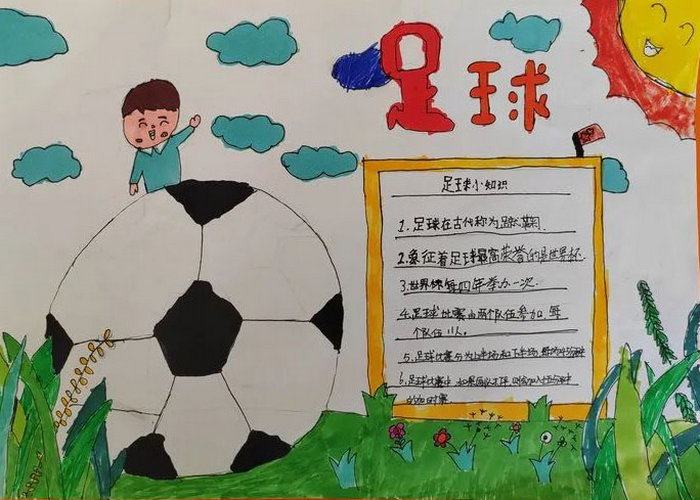 足球
足球小知识
1.足球在古代称为蹴鞠
2.象征着足球最高荣誉的是世界杯
3.世界杯每四年举办一次.
4.足球比赛由两个队伍参加 每
个队伍11人.
5.足球比赛分为上半场和下半场
6.足球比赛中
的加时赛